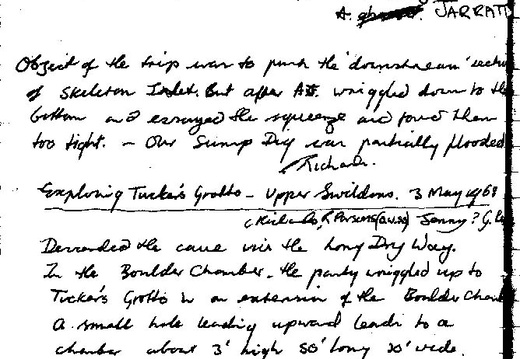 A. JARRATT
Object of the trip was to push the 'downstream' section
of Skeleton Inlet. But after A.J. wriggled down to the
bottom and the squeeze and found them
too tight. - Our Sump Dig was partially flooded
Richard.
Exploring Tucker's Grotto - Upper Swildons. 3 May 1968
R. Parsons Jenny? G.
Descended the cave via the Long Dry Way.
In the Boulder Chamber - the party wriggled up to
Tucker's Grotto in an extension of the Boulder Chamber
A small hole leading upward leads to a
chamber about 3' high 50' long 20' wide.